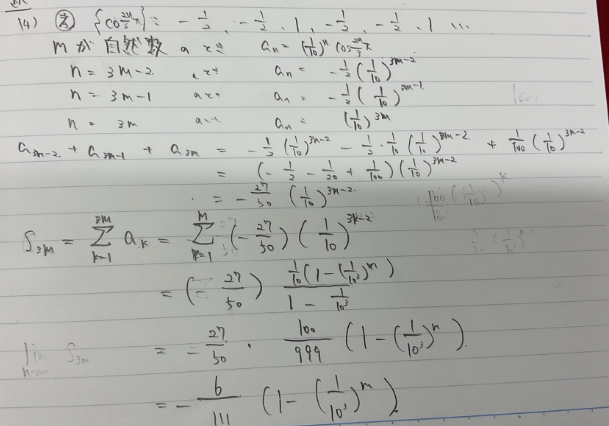 (4) {cos 2n/3 π} : -1/2, -1/2, 1, -1/2, -1/2, 1 ...
mが自然数のとき a_n = (1/10)^n cos 2n/3 π
n = 3m-2 のとき a_n = -1/2 (1/10)^{3m-2}
n = 3m-1 のとき a_n = -1/2 (1/10)^{3m-1}
n = 3m のとき a_n = (1/10)^{3m}
a_{3m-2} + a_{3m-1} + a_{3m} = -1/2 (1/10)^{3m-2} - 1/2 · 1/10 (1/10)^{3m-2} + 1/100 (1/10)^{3m-2}
= (-1/2 - 1/20 + 1/100) (1/10)^{3m-2}
= -27/50 (1/10)^{3m-2}
S_{3m} = Σ_{k=1}^{3m} a_k = Σ_{k=1}^{m} (-27/50) (1/10)^{3k-2}
= (-27/50) 1/10 (1 - (1/10^3)^m) / (1 - 1/10^3)
= -27/50 · 100/999 (1 - (1/10^3)^m)
= -6/111 (1 - (1/10^3)^m)